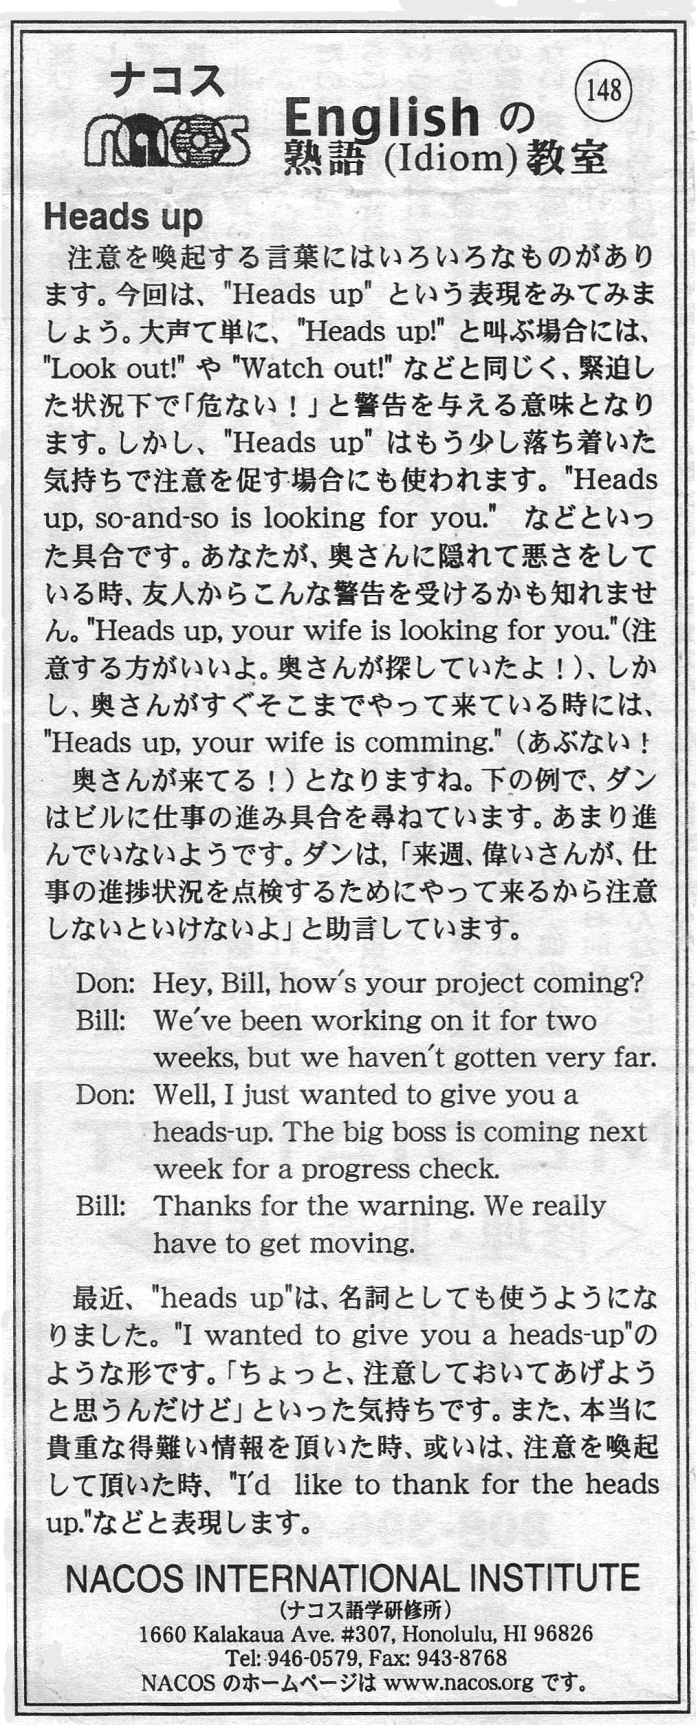 ナコス
nacos
148
Englishの
熟語 (Idiom) 教室
Heads up
注意を喚起する言葉にはいろいろなものがあり
ます。今回は、"Heads up" という表現をみてみま
しょう。大声て単に、"Heads up!" と叫ぶ場合には、
"Look out!" や "Watch out!" などと同じく、緊迫し
た状況下で「危ない！」と警告を与える意味となり
ます。しかし、"Heads up" はもう少し落ち着いた
気持ちで注意を促す場合にも使われます。"Heads
up, so-and-so is looking for you." などといっ
た具合です。あなたが、奥さんに隠れて悪さをして
いる時、友人からこんな警告を受けるかも知れませ
ん。"Heads up, your wife is looking for you."(注
意する方がいいよ。奥さんが探していたよ！)、しか
し、奥さんがすぐそこまでやって来ている時には、
"Heads up, your wife is comming." (あぶない！
奥さんが来てる！)となりますね。下の例で、ダン
はビルに仕事の進み具合を尋ねています。あまり進
んでいないようです。ダンは,「来週、偉いさんが、仕
事の進捗状況を点検するためにやって来るから注意
しないといけないよ」と助言しています。
Don: Hey, Bill, how's your project coming?
Bill: We've been working on it for two
weeks, but we haven't gotten very far.
Don: Well, I just wanted to give you a
heads-up. The big boss is coming next
week for a progress check.
Bill: Thanks for the warning. We really
have to get moving.
最近、"heads up"は、名詞としても使うようにな
りました。"I wanted to give you a heads-up"の
ような形です。「ちょっと、注意しておいてあげよう
と思うんだけど」といった気持ちです。また、本当に
貴重な得難い情報を頂いた時、或いは、注意を喚起
して頂いた時、"I'd like to thank for the heads
up."などと表現します。
NACOS INTERNATIONAL INSTITUTE
(ナコス語学研修所)
1660 Kalakaua Ave. #307, Honolulu, HI 96826
Tel: 946-0579, Fax: 943-8768
NACOS のホームページは www.nacos.org です。